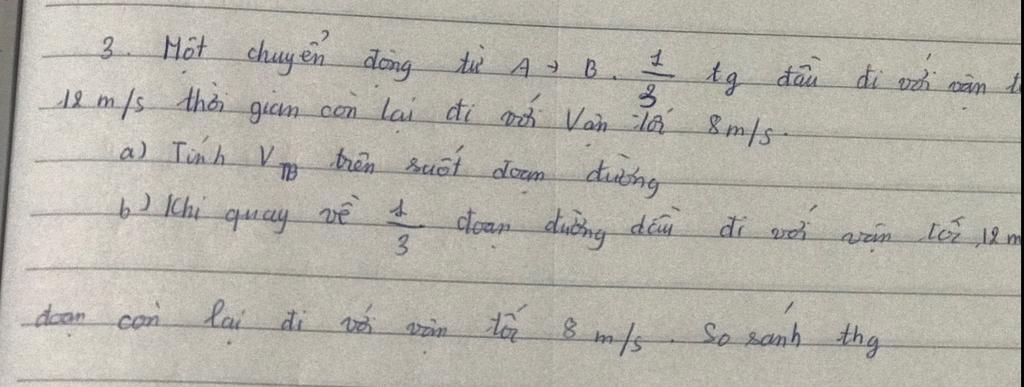 3. Một chuyển động từ A → B. 1/3 tg đầu đi với vận t
12 m/s thời gian còn lại đi với Vận tốc 8m/s.
a) Tính VTB trên suốt đoạn đường
b) Khi quay về 1/3 đoạn đường đầu đi với vận tốc 12 m
đoạn còn lại đi với vận tốc 8 m/s. So sánh thg